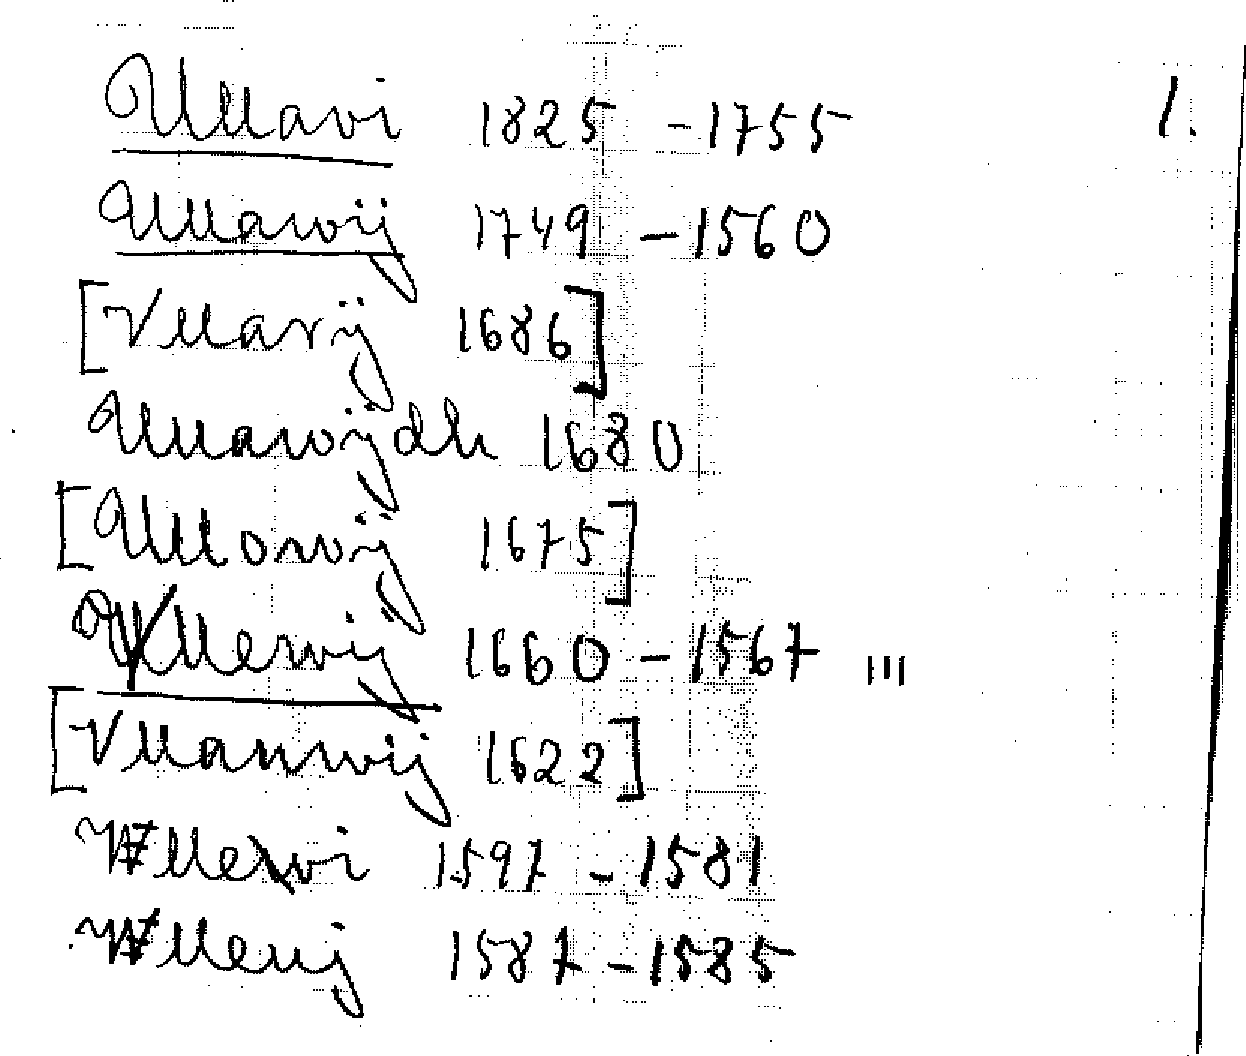 Ullavi 1825 - 1755 1.
Ullawij 1749 - 1560
[Vllavij 1686]
Ullawijdh 1680
[Ullowij 1675]
Vllewij 1660 - 1567 III
[Vllanwij 1622]
Wllewi 1597 - 1581
Wlleuj 1587 - 1585